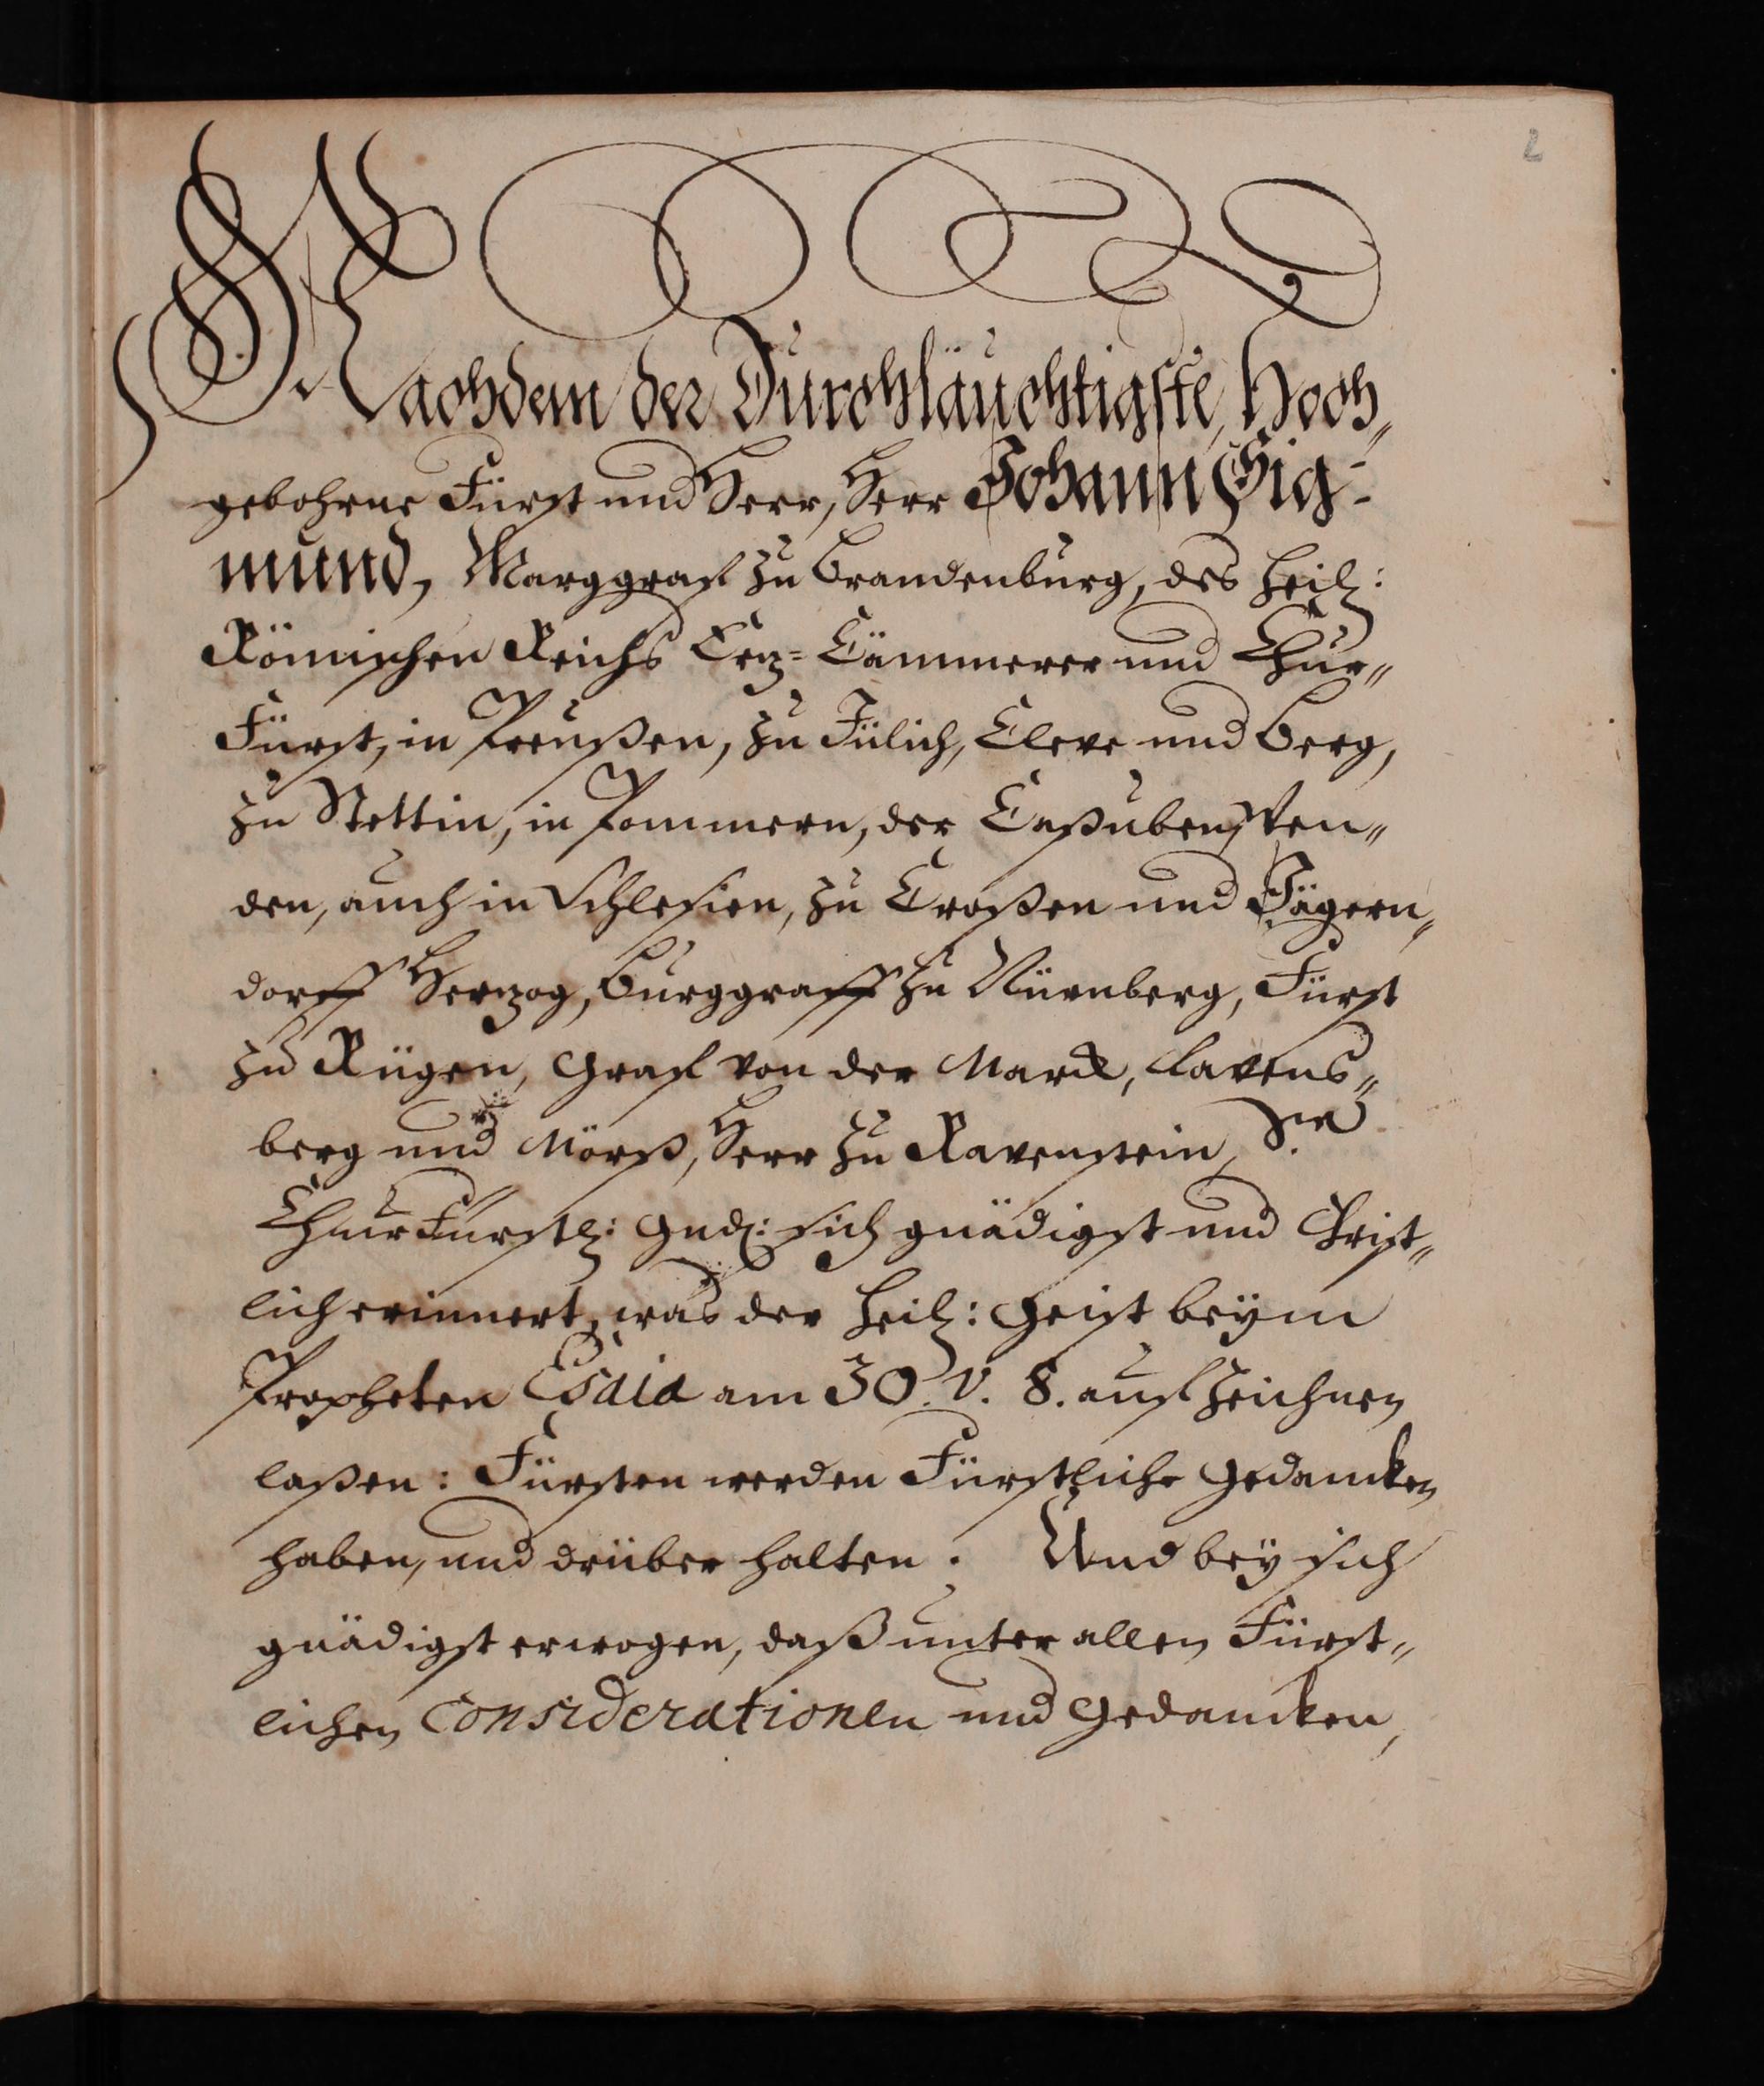 2
Nachdem der Durchläuchtigste, Hoch„
gebohrne Fürst und Herr, Herr Johann Sig=
mund, Marggraf zu Brandenburg, des heil:
Römischen Reichs Ertz=Cämmerer und Chur„
Fürst, in Preußen, zu Jülich, Cleve und Berg,
zu Stettin, in Pommern, der Caßuben, Wen„
den, auch in Schlesien, zu Croßen und Jägern„
dorff Hertzog, Burggraff zu Nürnberg, Fürst
zu Rügen, Graf von der Marck, Ravens„
berg und Mörß, Herr zu Ravenstein, S.e
ChurFürstl: Gnd: sich gnädigst und Christ„
lich erinnert, was der heil: Geist beÿm
Propheten Esaia am 30. v. 8. aufzeichnen
laßen: Fürsten werden Fürstliche Gedancken
haben, und drüber halten. Und beÿ sich
gnädigst erwogen, daß unter allen Fürst„
lichen Considerationen und Gedancken,